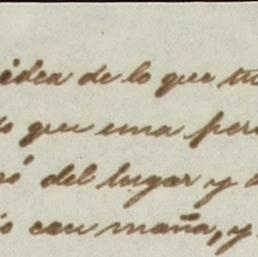 idea de lo que tu
que una per
ó del lugar y
con maña, y